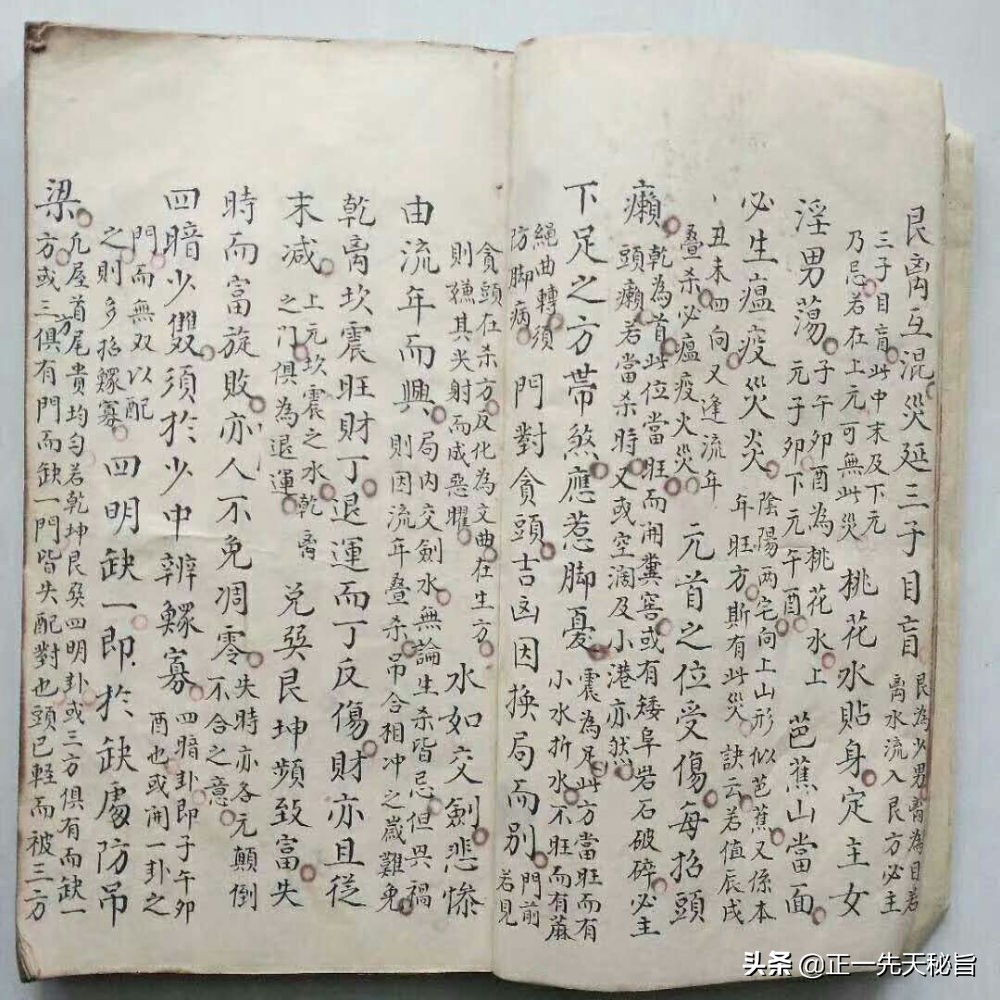 艮离互混災延三子目盲
艮為少男离為目若
离水流入艮方必主
三子目盲此中末及下元
乃忌若在上元可無此災
桃花水貼身定主女
淫男蕩
子午卯酉為桃花水上
元子卯下元午酉
芭蕉山當面
必生瘟疫災炎
陰陽两宅向上山形似芭蕉又係本
年旺方斯有此災訣云若值辰戌
丑未四向又逢流年
疊杀必瘟疫火災
元首之位受傷每招頭
癩
乾為首此位當旺而開糞窖或有矮阜岩石破碎必主
頭癩若當杀時又或空濶及小港亦然
下足之方帶煞應惹脚憂
震為足此方當旺而有
小水折水不旺而有蔴
繩曲轉須
防脚病
門對貪頭吉凶因換局而別
門前
若見
貪頭在杀方反化為文曲在生方
則嫌其尖射而成惡曜
水如交劍悲慘
由流年而興
局内交劍水無論生杀皆忌但畏禍
則因流年疊杀吊合相冲之歲難免
乾离坎震旺財丁退運而丁反傷財亦且從
末减
上元坎震之水乾离
之门俱為退運
兌巽艮坤頻致富失
時而富旋敗亦人不免凋零
失時亦各元顛倒
不合之意
四暗少雙須於少中辨鰥寡
四暗卦即子午卯
酉也或開一卦之
門而無双以配
之則多招鰥寡
四明缺一即於缺處防吊
梁
凢屋首尾貴均勻若乾坤艮巽四明卦或三方俱有而缺一
方或三方俱有門而缺一門皆失配對也頭已輕而被三方
头条 @正一先天秘旨